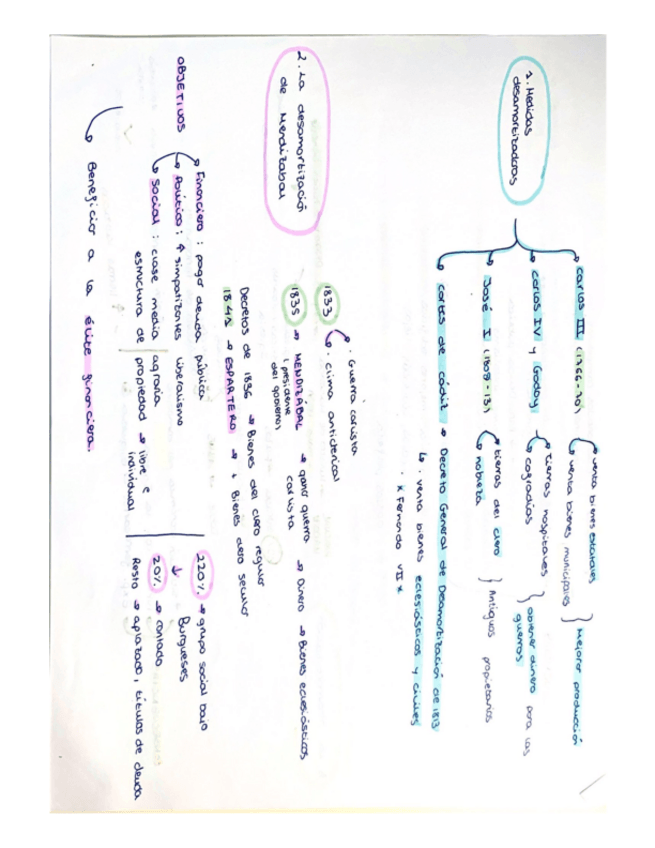 1. Medidas
desamortizadoras
Carlos III (1766-70)
venta bienes estatales
venta bienes municipales } Mejorar producción
Carlos IV y Godoy
tierras hospitales
cofradías } obtener dinero para las
guerras
José I (1808-13)
tierras del clero
nobleza } Antiguos propietarios
Cortes de Cádiz → Decreto General de Desamortización de 1813
↳ · venta bienes eclesiásticos y civiles
· x Fernando VII x
2. La desamortizació
de Mendizabal
1833
· Guerra carlista
· clima anticlerical
1835 → MENDIZÁBAL → ganar guerra → Dinero → Bienes eclesiásticos
presidente carlista
del gobierno
Decretos de 1836 → Bienes del clero regular
1841 → ESPARTERO → + Bienes clero secular
OBJETIVOS
Financiero : pago deuda pública
Político : ↑ simpatizantes liberalismo
Social : clase media agraria
estructura de propiedad → libre e
individual
220%. → grupo social bajo
↓ Burgueses
20%. → contado
Resto → aplazado, títulos de deuda
Beneficio a la élite financiera.